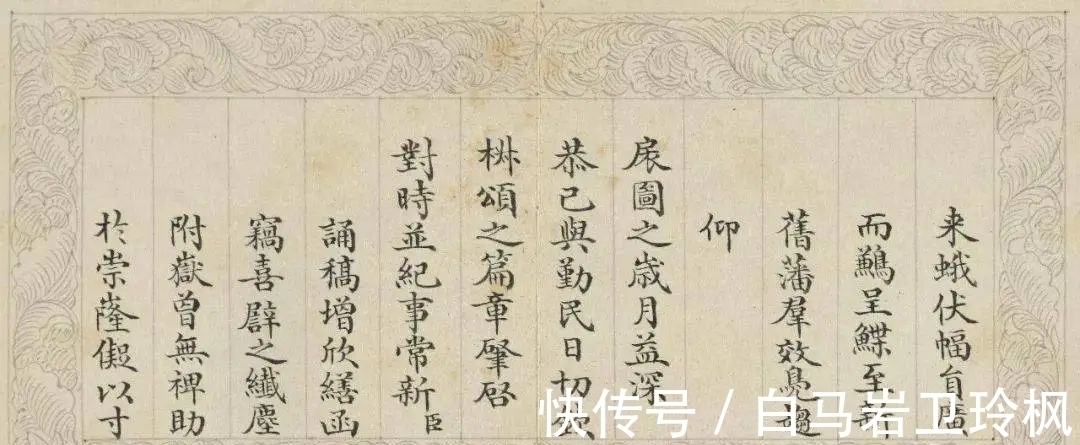 来蛾伏幅員廣
而鷀呈鰈至
舊藩羣效鳧趨
仰
扆圖之歳月益深
恭己與勤民日切
椒頌之篇章肇啓
對時並紀事常新臣
誦稿增欣繕函
竊喜辟之纖塵
附嶽曾無裨助
於崇隆儗以寸
快传号 / 白马岩卫玲枫